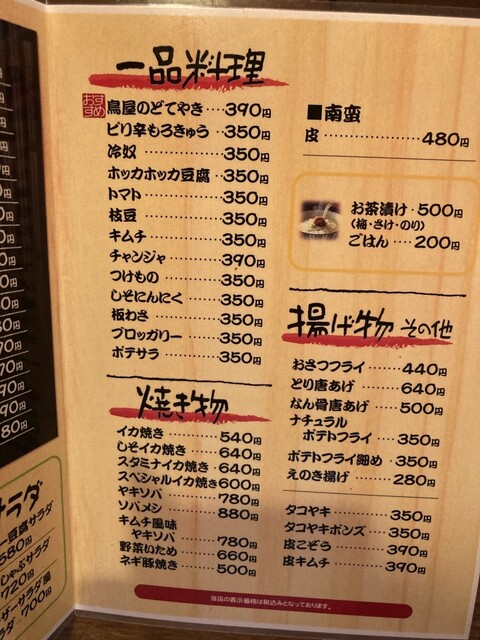 一品料理
おすすめ
鳥屋のどてやき…390円
ピリ辛もろきゅう…350円
冷奴…350円
ホッカホッカ豆腐…350円
トマト…350円
枝豆…350円
キムチ…350円
チャンジャ…390円
つけもの…350円
しそにんにく…350円
板わさ…350円
ブロッガリー…350円
ポテサラ…350円
焼き物
イカ焼き…540円
しそイカ焼き…640円
スタミナイカ焼き…640円
スペシャルイカ焼き600円
ヤキソバ…780円
ソバメシ…880円
キムチ風味
ヤキソバ…780円
野菜いため…660円
ネギ豚焼き…500円
■南蛮
皮…480円
お茶漬け・500円
(梅・さけ・のり)
ごはん…200円
揚げ物 その他
おさつフライ…440円
とり唐あげ…640円
なん骨唐あげ…500円
ナチュラル
ポテトフライ…350円
ポテトフライ細め・350円
えのき揚げ…280円
タコヤキ…350円
タコヤキポンズ…350円
皮こぞう…390円
皮キムチ…390円
当店の表示価格は税込みとなっております。
サラダ
豆腐サラダ
580円
しゃぶサラダ
720円
ザーサラダ風
700円